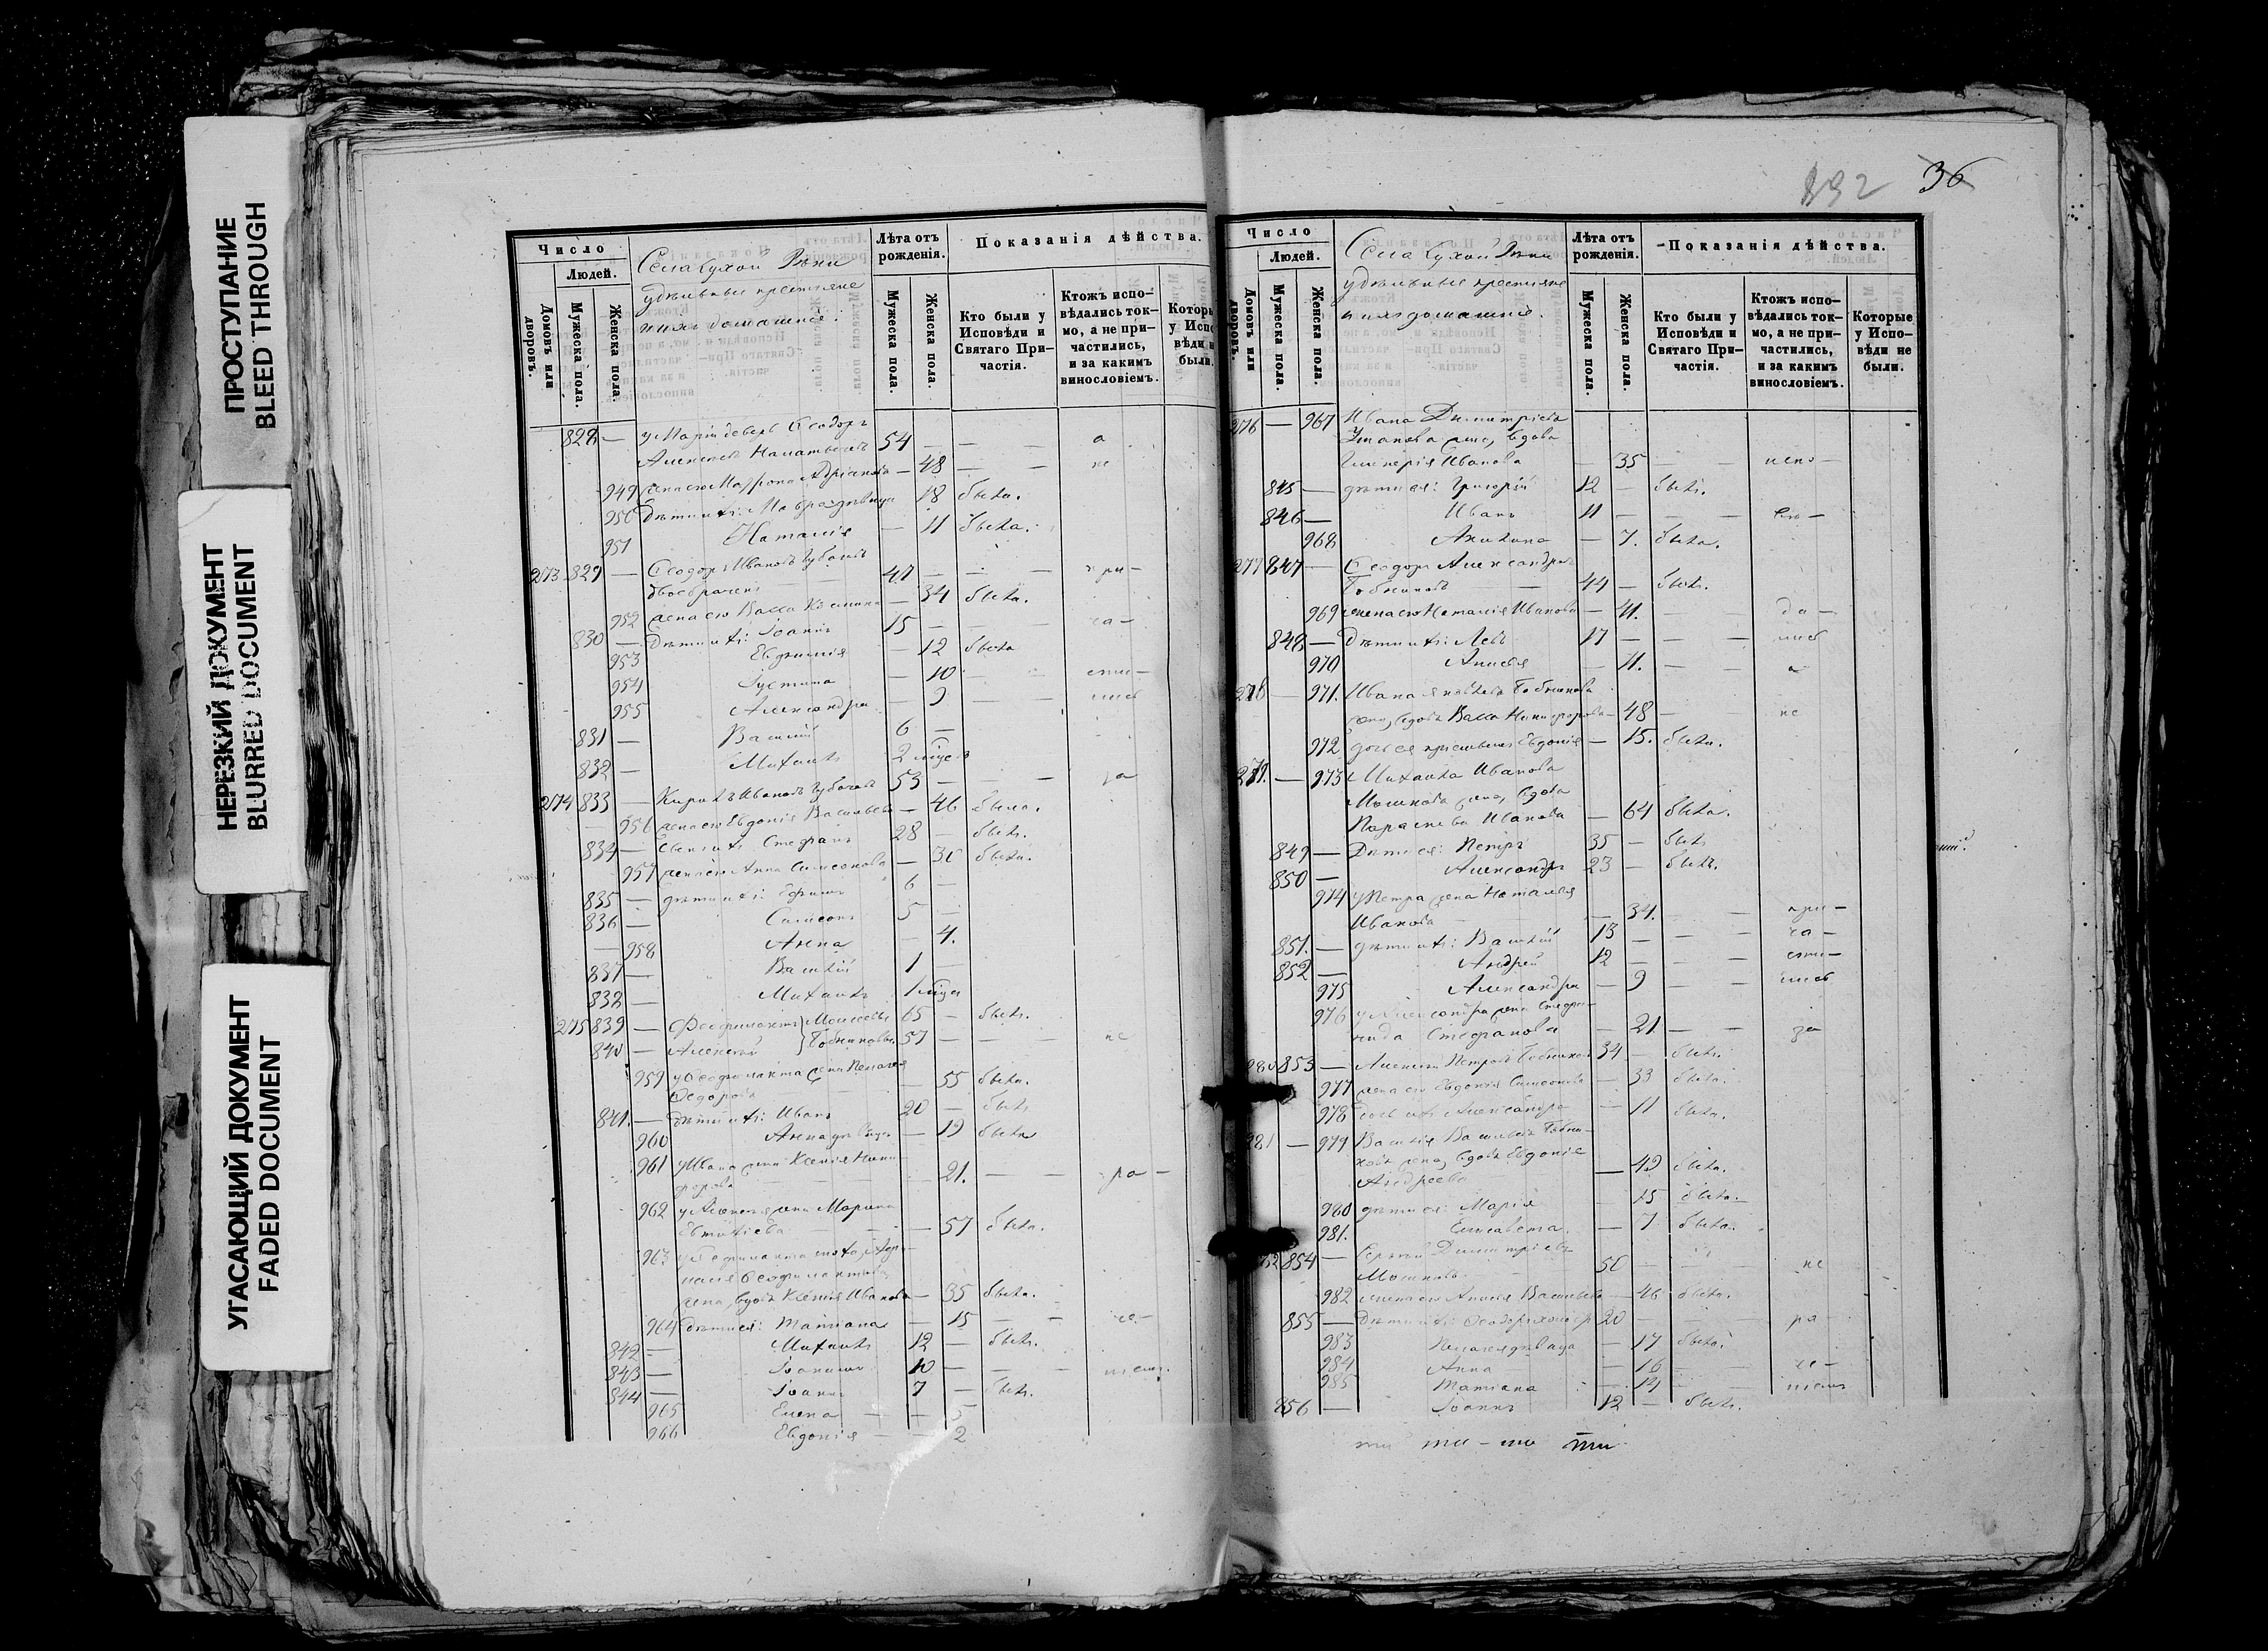 ПРОСТУПАНИЕ
BLEED THROUGH
НЕРЕЗКИЙ ДОКУМЕНТ
BLURRED DOCUMENT
УГАСАЮЩИЙ ДОКУМЕНТ
FADED DOCUMENT
Число
Людей.
Домовъ или дворовъ.
Мужеска пола.
Женска пола.
Села Сухой Рѣки
удѣльные крестьяне
и ихъ домашніе:
Лѣта отъ рожденія.
Мужеска пола.
Женска пола.
Показанія дѣйства.
Кто были у Исповѣди и Святаго Причастія.
Ктожъ исповѣдались токмо, а не причастились, и за какимъ винословіемъ.
828 — у Маріи деверь Ѳеодоръ
Алексѣевъ 54 — — — а
949 жена его Матрона Адріанова — 48 — — не
950 дѣти ихъ: Мавра дѣвица 18 была.
951 Наталія — 11 была.
273 829 — Ѳеодоръ Ивановъ
двоебрачен 47 — — — при—
952 жена его Васса Козмина — 34 была.
830 — дѣти ихъ: Іоаннъ 15 — — — ча—
953 Евфимія — 12 была
954 Іустина — 10 — — сти—
955 Александра — 9 — — лись
831 — Василій 6 —
832 — Михаилъ 2 мѣсяц
274 833 — Кириллъ Ивановъ 53 — — — за
956 жена его Евдокія Васильева — 46 была.
834 — сынъ ихъ Стефанъ 28 — былъ.
957 жена его Анна Симеонова — 30 была.
835 — дѣти ихъ: Ефимъ 6 —
836 — Симеонъ 5 —
958 Анна — 4.
837 — Василій 1 —
838 — Михаилъ 1 мѣсяц
275 839 — Ѳеофилактъ Моисеевы 65 — былъ.
840 — Алексѣй Бобниковы 57 — — — не
959 у Ѳеофилакта жена Пелагея
Ѳедорова — 55 была.
841. — дѣти ихъ: Иванъ 20 — былъ
960 Анна дѣвица — 19 была
961 у Ивана жена Ксенія Никифорова — 21. — — ра—
962 у Алексѣя жена Марина
Евтихіева — 57 была.
963 у Ѳеофилакта
Ѳеофилактова
жена, вдова Ксенія Иванова — 35 была.
964 дѣти ея: Татіана — 15 — — че—
842 — Михаилъ 12 — былъ.
843 — Іоакимъ 10 — — — ніемъ.
844 — Іоаннъ 7 — былъ.
965 Елена — — 5
966 Евдокія — — 2
132 36
Число
Людей.
Домовъ или дворовъ.
Мужеска пола.
Женска пола.
Села Сухой Рѣки
удѣльные крестьяне
и ихъ домашніе:
Лѣта отъ рожденія.
Мужеска пола.
Женска пола.
Показанія дѣйства.
Кто были у Исповѣди и Святаго Причастія.
Ктожъ исповѣдались токмо, а не причастились, и за какимъ винословіемъ.
Которые у Исповѣди не были.
276 — 967 Ивана Димитріева
жена, вдова
Гликерія Иванова — 35 — — испо—
845 — дѣти ея: Григорій 12 — былъ.
846 — Иванъ 11 — — — вѣ—
968 Акилина — 7. была.
277 847 — Ѳеодоръ Александровъ
Бобниковъ — 44 — былъ.
969 жена его Наталія Ивановa — 41. — — да—
848 — Дѣти ихъ: Левъ 17 — — — лись
970 Анисья — 11. — — а
278 — 971. Ивана Яковлева Бобникова
жена, вдова Васса Никифорова — 48 — — не
972 дочь ея Евдокія — 15. была.
279. — 973 Михаила Иванова
Мошкова жена, вдова
Параскева Иванова — 64 была.
849 — Дѣти ея: Петръ 35 — былъ
850 — Александръ 23 — былъ.
974 у Петра жена Наталья
Иванова — 34. — — при—
851. — дѣти ихъ: Василій 13 — — — ча—
852 — Андрей 12 — — — сти—
975 Александра — 9 — — лись
976 у Александра жена Стефанида Стефанова — 21 — — за
280 853 — Алексѣй Петровъ Бобниковъ 34 — былъ.
977 жена его Евдокія Симеонова — 33 была.
978 дочь ихъ Александра — 11 была.
281 — 979 Василія Васильева Бобникова жена, вдова Евдокія
Андреева — 42 была.
980 дѣти ея: Марія — 15 была.
981. Елисавета — 7 была.
282 854 — Сергѣй Димитріевъ
Мошковъ 50 — — — не
982 жена его Анисія Васильева — 46 была.
855 — Дѣти ихъ: Ѳеодоръ холост 20 — — — ра—
983 Пелагея дѣвица — 17 была.
984 Анна — 16 — — че—
985 Татіана — 14 — — ніемъ
856 — Іоаннъ 12 — былъ.